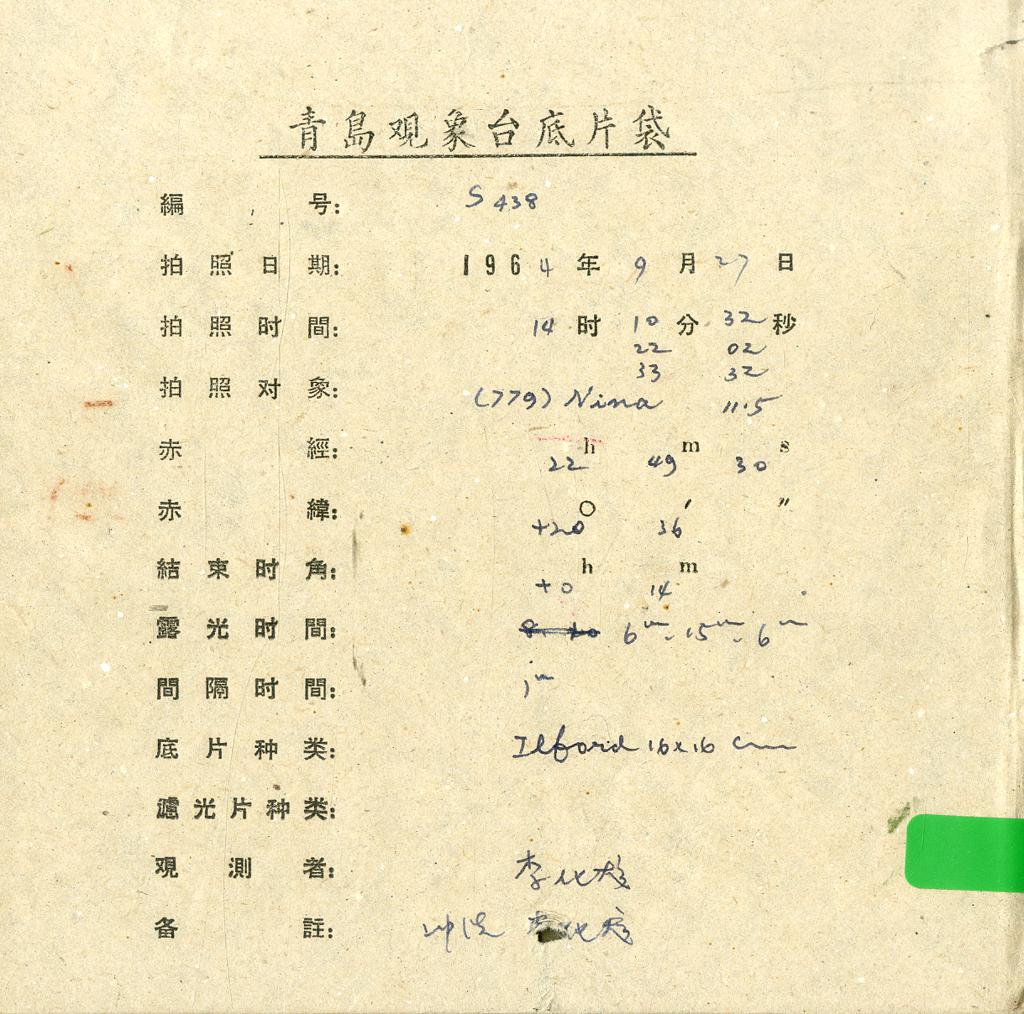 青島观象台底片袋
編号: S 438
拍照日期: 1964年 9月 27日
拍照时間: 14时 10分 32秒
22 02
33 32
拍照对象: (779) Nina 11.5
赤經: 22h 49m 30s
赤緯: +20° 36′ ″
結束时角: +0h 14m
露光时間: 6m - 15m - 6m
間隔时間: 1m
底片种类: Ilford 16x16 cm
濾光片种类:
观測者: 李
备註: 冲洗 李